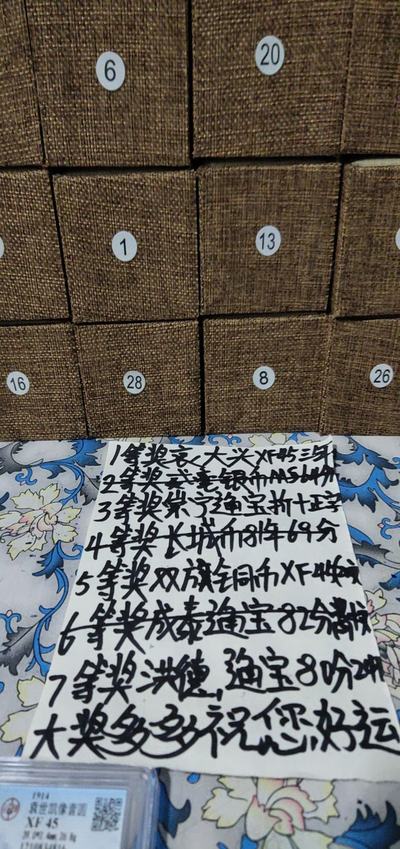 6
20
1
13
16
28
8
26
1等奖袁大头XF45三年
2等奖银币MS64分
3等奖崇宁通宝折十正字
4等奖长城币81年69分
5等奖双旗铜币XF45
6等奖咸泰通宝82分
7等奖洪德通宝80分
大奖多多祝您好运
1914
袁世凯像壹圆
XF 45